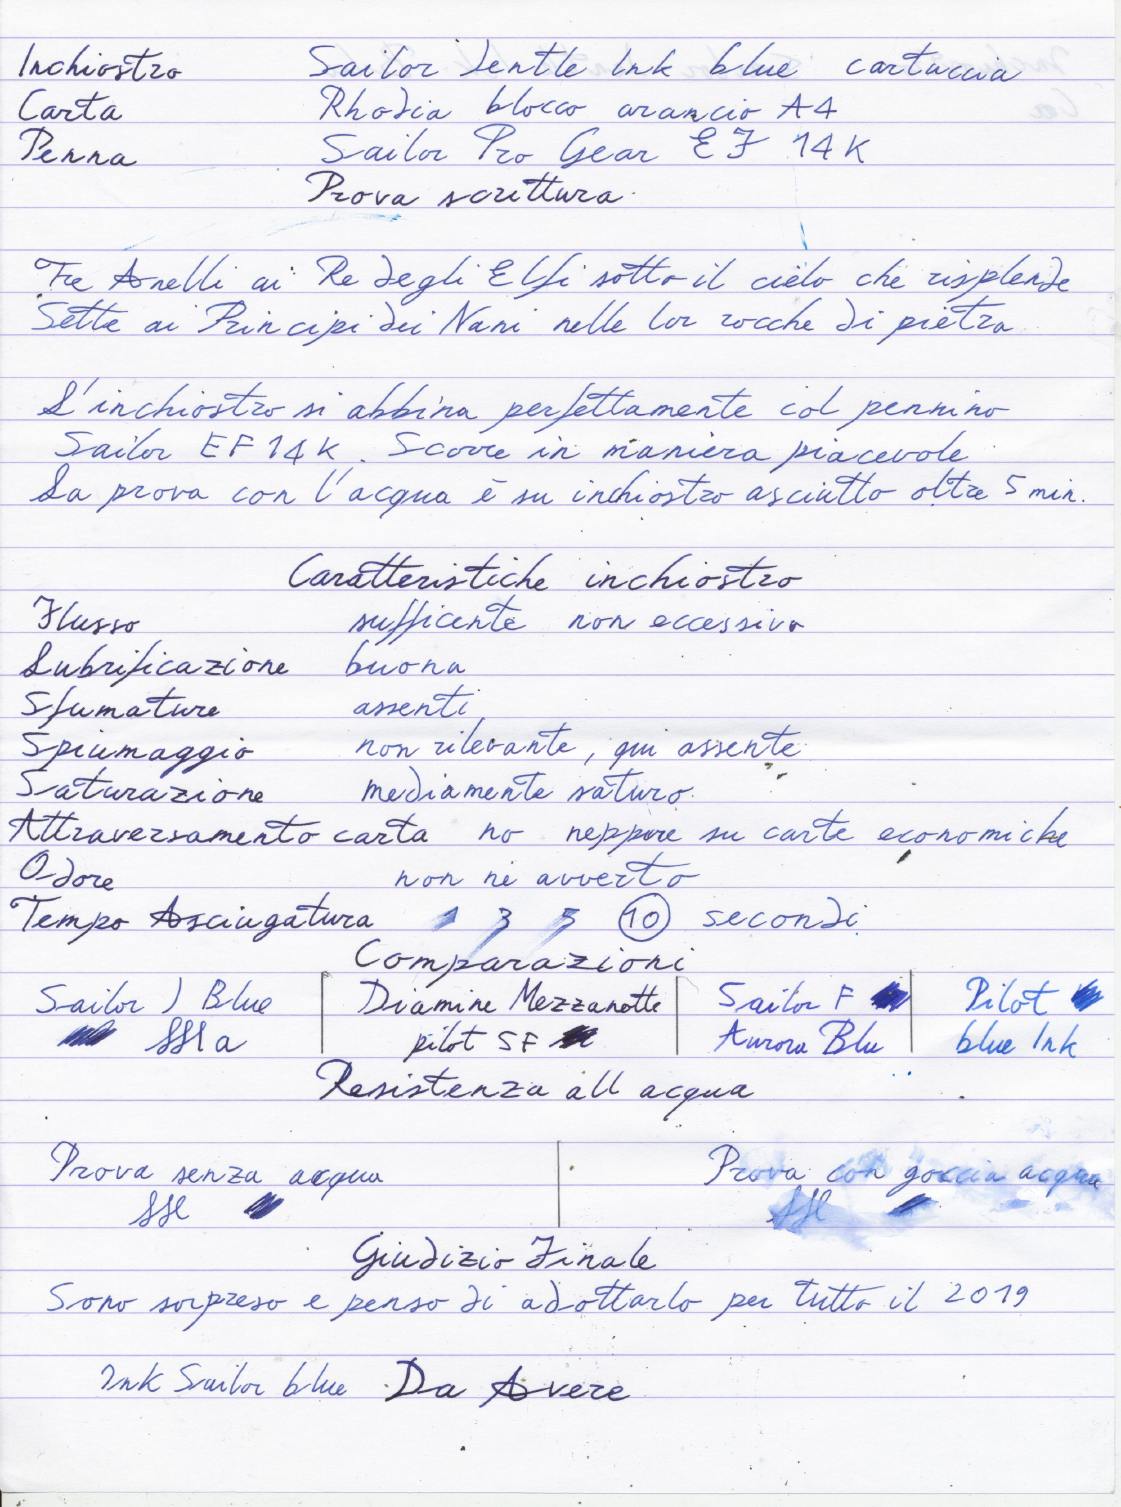 Inchiostro Sailor Jentle Ink blue cartuccia
Carta Rhodia blocco arancio A4
Penna Sailor Pro Gear EF 14K
Prova scrittura
Tre Anelli ai Re degli Elfi sotto il cielo che risplende
Sette ai Principi dei Nani nelle lor rocche di pietra
L'inchiostro si abbina perfettamente col pennino
Sailor EF 14K. Scorre in maniera piacevole
La prova con l'acqua è su inchiostro asciutto oltre 5 min.
Caratteristiche inchiostro
Flusso sufficente non eccessivo
Lubrificazione buona
Sfumature assenti
Spiumaggio non rilevante, qui assente
Saturazione mediamente saturo.
Attraversamento carta no neppure su carte economiche
Odore non ne avverto
Tempo Asciugatura 1 3 5 10 secondi
Comparazioni
Sailor J Blue Diamine Mezzanotte Sailor F Pilot
pilot SF Aurora Blu blue Ink
Resistenza all acqua
Prova senza acqua Prova con goccia acqua
Giudizio Finale
Sono sorpreso e penso di adottarlo per tutto il 2019
Ink Sailor blue Da Avere